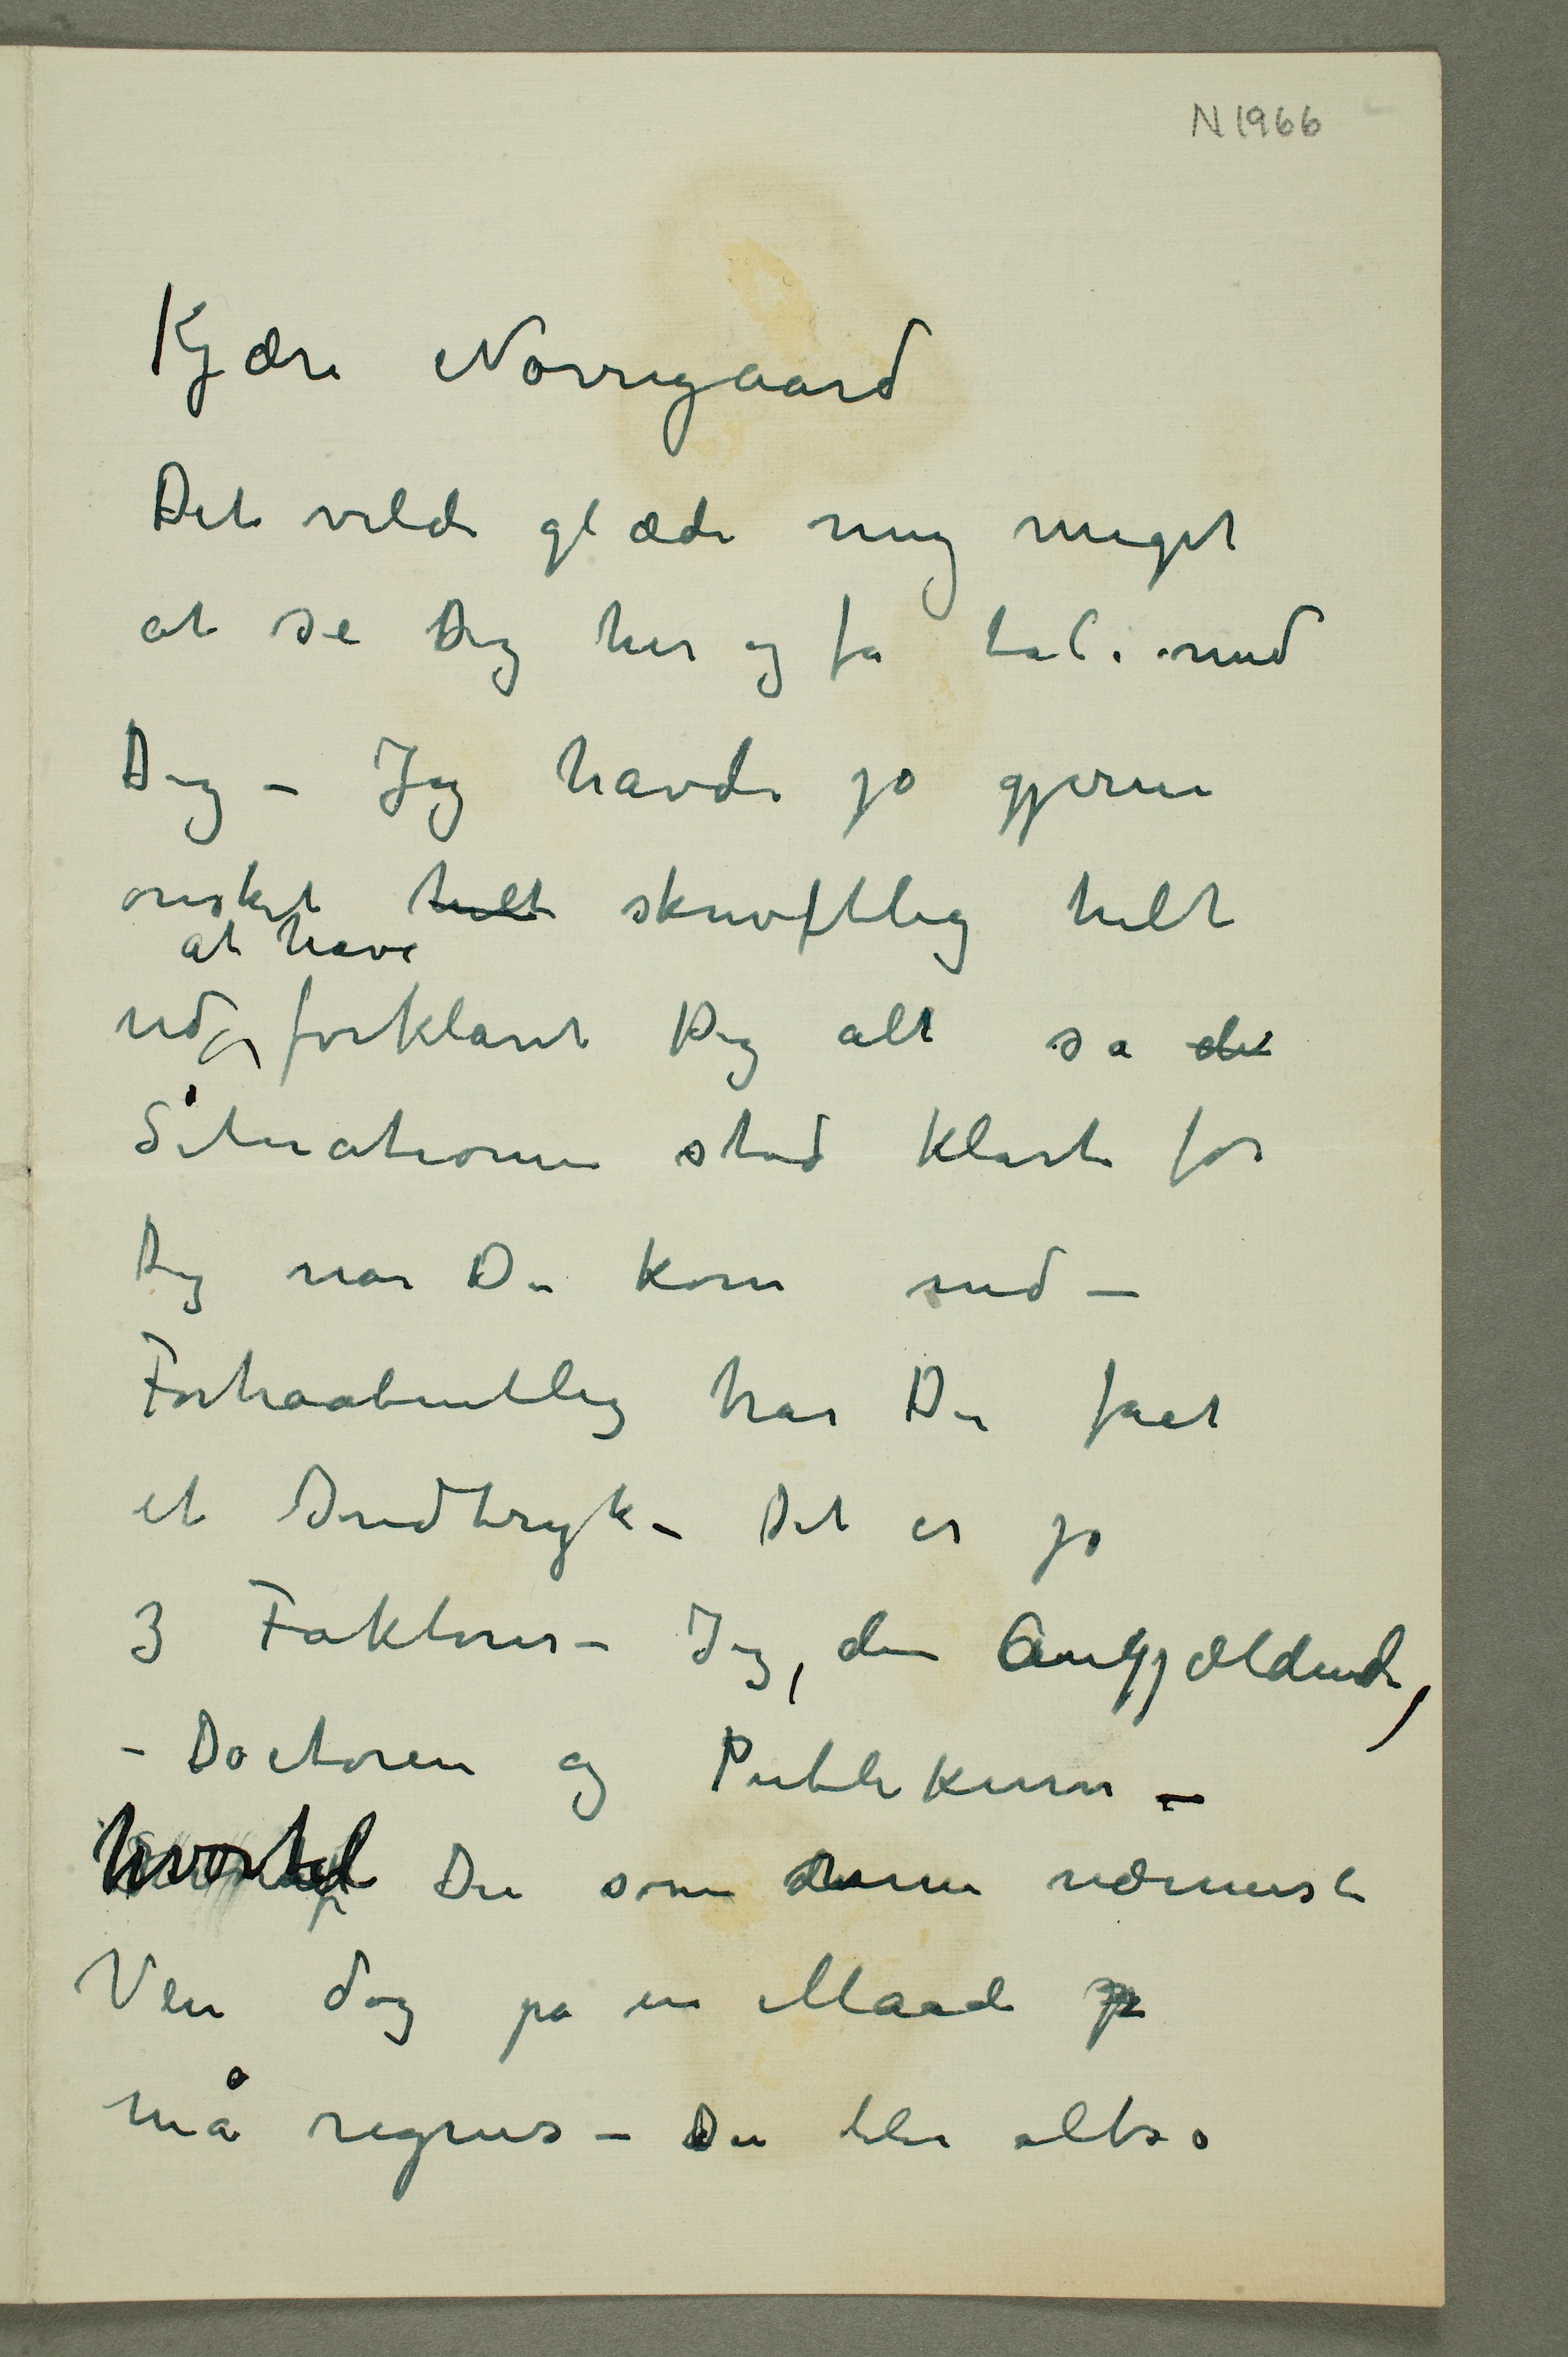 N 1966
Kjære Nørregaard
Det vilde glæde mig meget
at se Dig her og få tale med
Dig – Jeg havde jo gjerne
ønsket helt skriftlig helt
at have
ud forklaret Dig alt så de
Situationen stod klart for
Dig når Du kom ned –
Forhaabentlig har Du faaet
et Indtryk – Det er jo
3 Faktorer – Jeg, den Angjældende,
– Doctoren og Publikum –
hvortil Du som denne nærmeste
Ven dog på en Maade
må regnes – Du blir altså